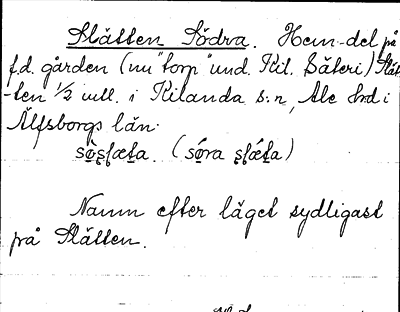 Slätten Södra. Hem-del på
f.d. gården (nu "torp" und. Kil. Säteri) Slät-
-ten 1/2 mtl. i Kilanda s:n, Ale hrd i
Älfsborgs län.
(söra
Namn efter läget sydligast
på Slätten.